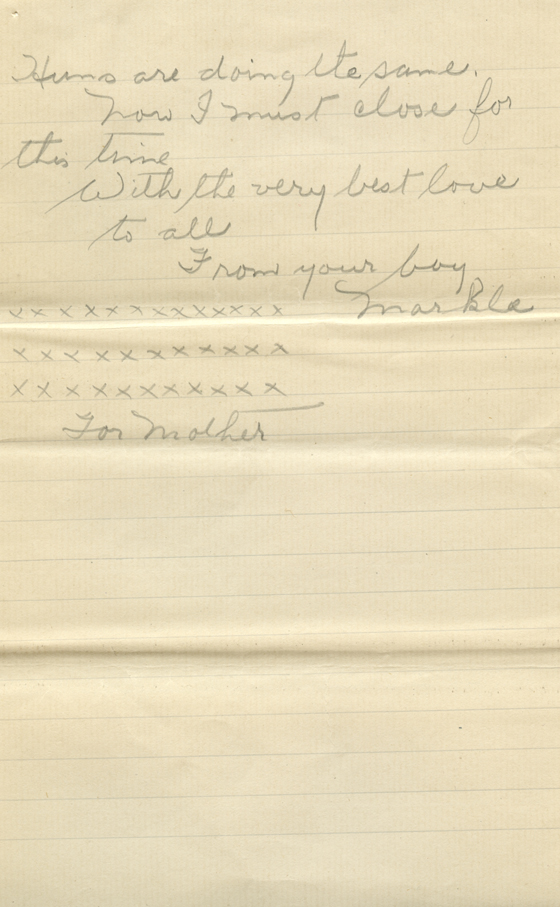 Huns are doing the same.
Now I must close for
this time
With the very best love
to all
From your boy
Markle
x x x x x x x x x x x x
x x x x x x x x x x x
x x x x x x x x x x x
For Mother